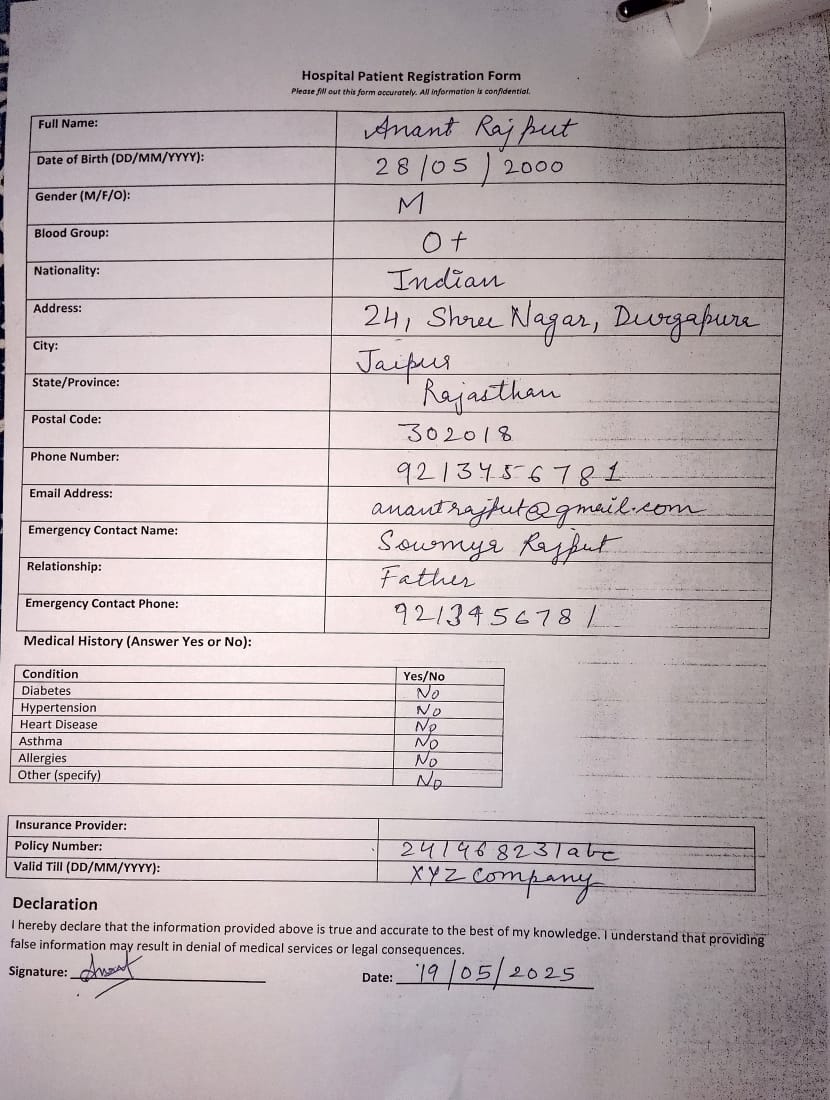 Hospital Patient Registration Form
Please fill out this form accurately. All information is confidential.
Full Name: Anant Rajput
Date of Birth (DD/MM/YYYY): 28/05/2000
Gender (M/F/O): M
Blood Group: O+
Nationality: Indian
Address: 24, Shree Nagar, Durgapura
City: Jaipur
State/Province: Rajasthan
Postal Code: 302018
Phone Number: 9213456781
Email Address: anantrajput@gmail.com
Emergency Contact Name: Soumya Rajput
Relationship: Father
Emergency Contact Phone: 9213456781
Medical History (Answer Yes or No):
Condition Yes/No
Diabetes No
Hypertension No
Heart Disease No
Asthma No
Allergies No
Other (specify) No
Insurance Provider:
Policy Number: 241968231abc
Valid Till (DD/MM/YYYY): XYZ company
Declaration
I hereby declare that the information provided above is true and accurate to the best of my knowledge. I understand that providing
false information may result in denial of medical services or legal consequences.
Signature: Anant Date: 19/05/2025